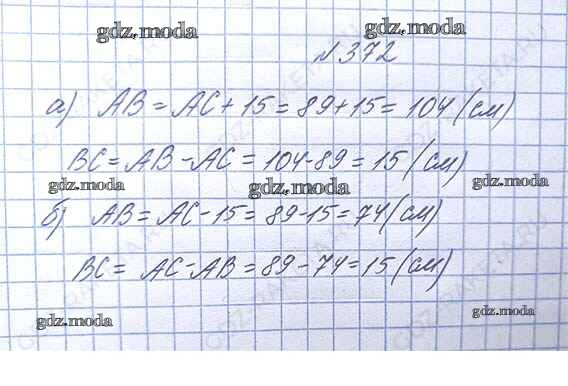 gdz.moda gdz.moda
№372
а) AB = AC + 15 = 89 + 15 = 104 (см)
BC = AB - AC = 104 - 89 = 15 (см)
gdz.moda gdz.moda gdz.moda
б) AB = AC - 15 = 89 - 15 = 74 (см)
BC = AC - AB = 89 - 74 = 15 (см)
gdz.moda gdz.moda gdz.moda